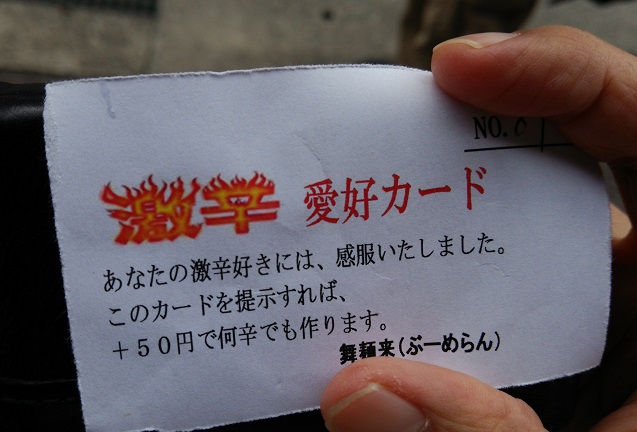 NO.
激辛 愛好カード
あなたの激辛好きには、感服いたしました。
このカードを提示すれば、
＋５０円で何辛でも作ります。
舞麺来(ぶーめらん)